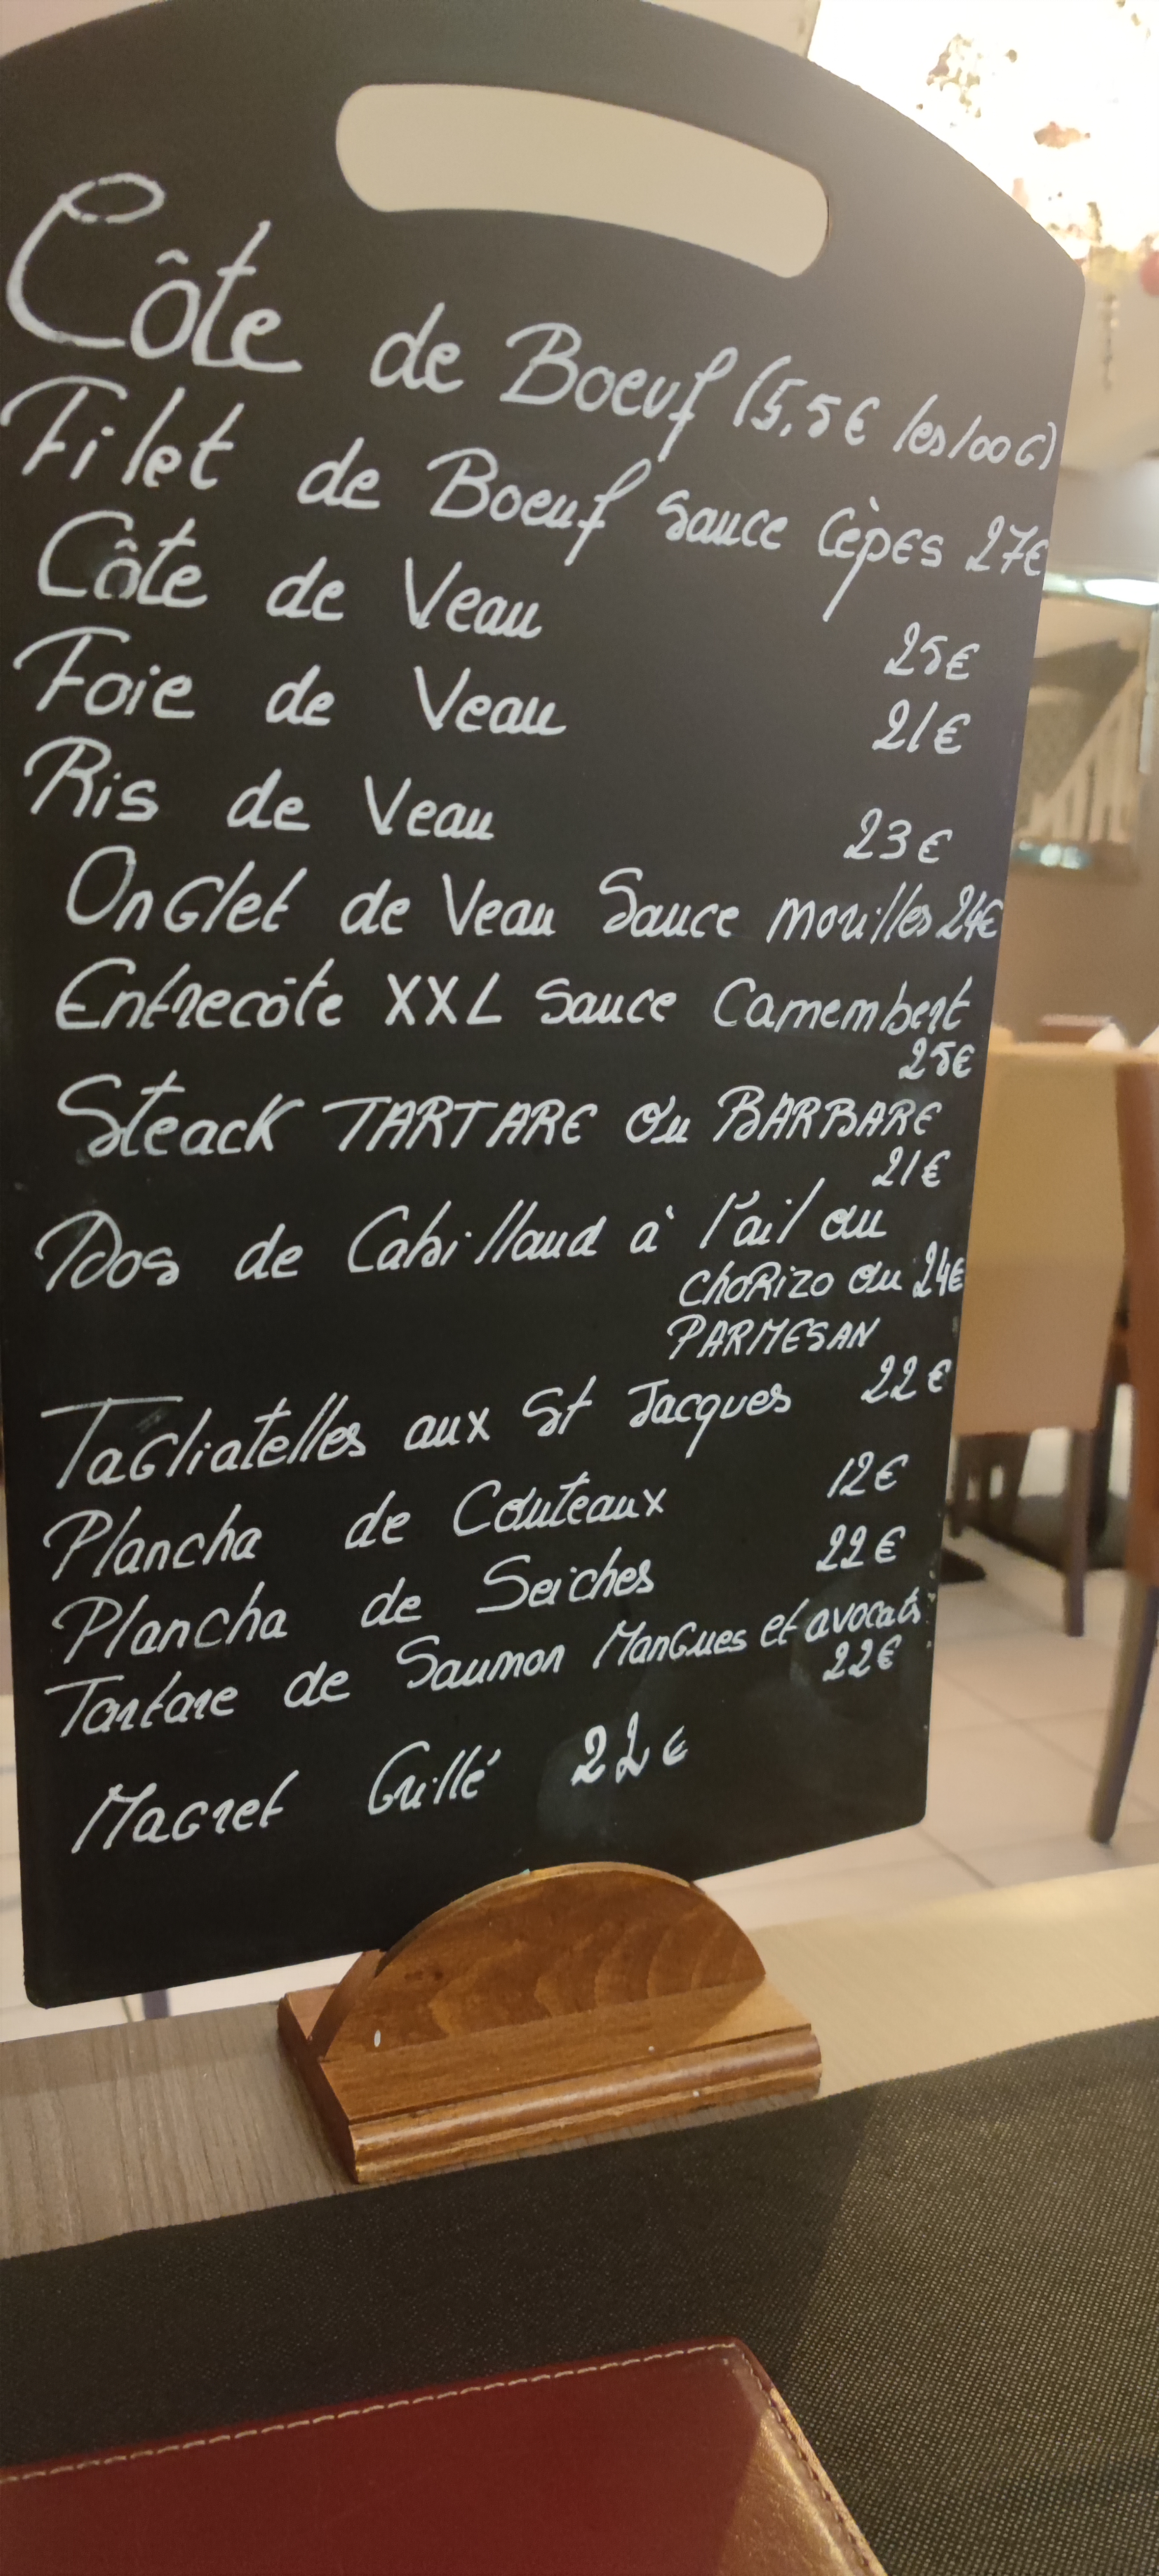 Côte de Boeuf (5,5€ les 100G)
Filet de Boeuf Sauce Cèpes 27€
Côte de Veau 25€
Foie de Veau 21€
Ris de Veau 23€
Onglet de Veau Sauce morilles 24€
Entrecôte XXL Sauce Camembert
25€
Steack TARTARE ou BARBARE
21€
Dos de Cabillaud à l'ail ou
CHORIZO ou 24€
PARMESAN
Tagliatelles aux St Jacques 22€
Plancha de Couteaux 12€
Plancha de Seiches 22€
Tartare de Saumon Mangues et avocats
22€
Magret Grillé 22€